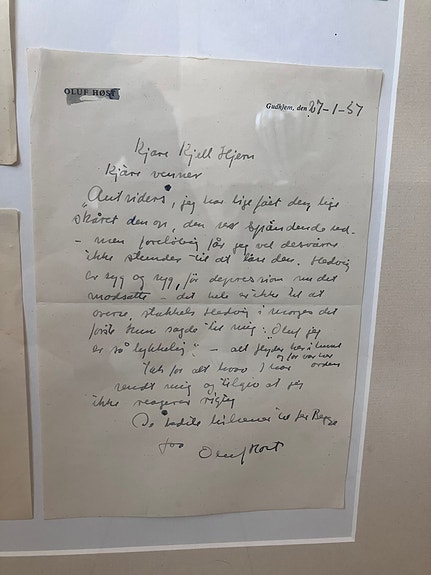 OLUF HØST
Gudhjem, den 27-1-57
Kjære Kjell Hjern
Kjære venner
"Outsiders, jeg har lige fået den, lige
skåret den op, den ser spændende ud -
- men foreløbig får jeg vel desværre
ikke stunder til at læse den. Hedvig
er syg og syg, før depression nu det
modsatte - det hele er ikke til at
overse, stakkels Hedvig i morges det
første hun sagde til mig: Oluf jeg
er så lykkelig" - alt flyder her i huset
og før var her orden
Tak for alt hvad I har
sendt mig og tilgiv at jeg
ikke reagerer rigtig
De bedste hilsener til jer Begge
fra
Oluf Høst